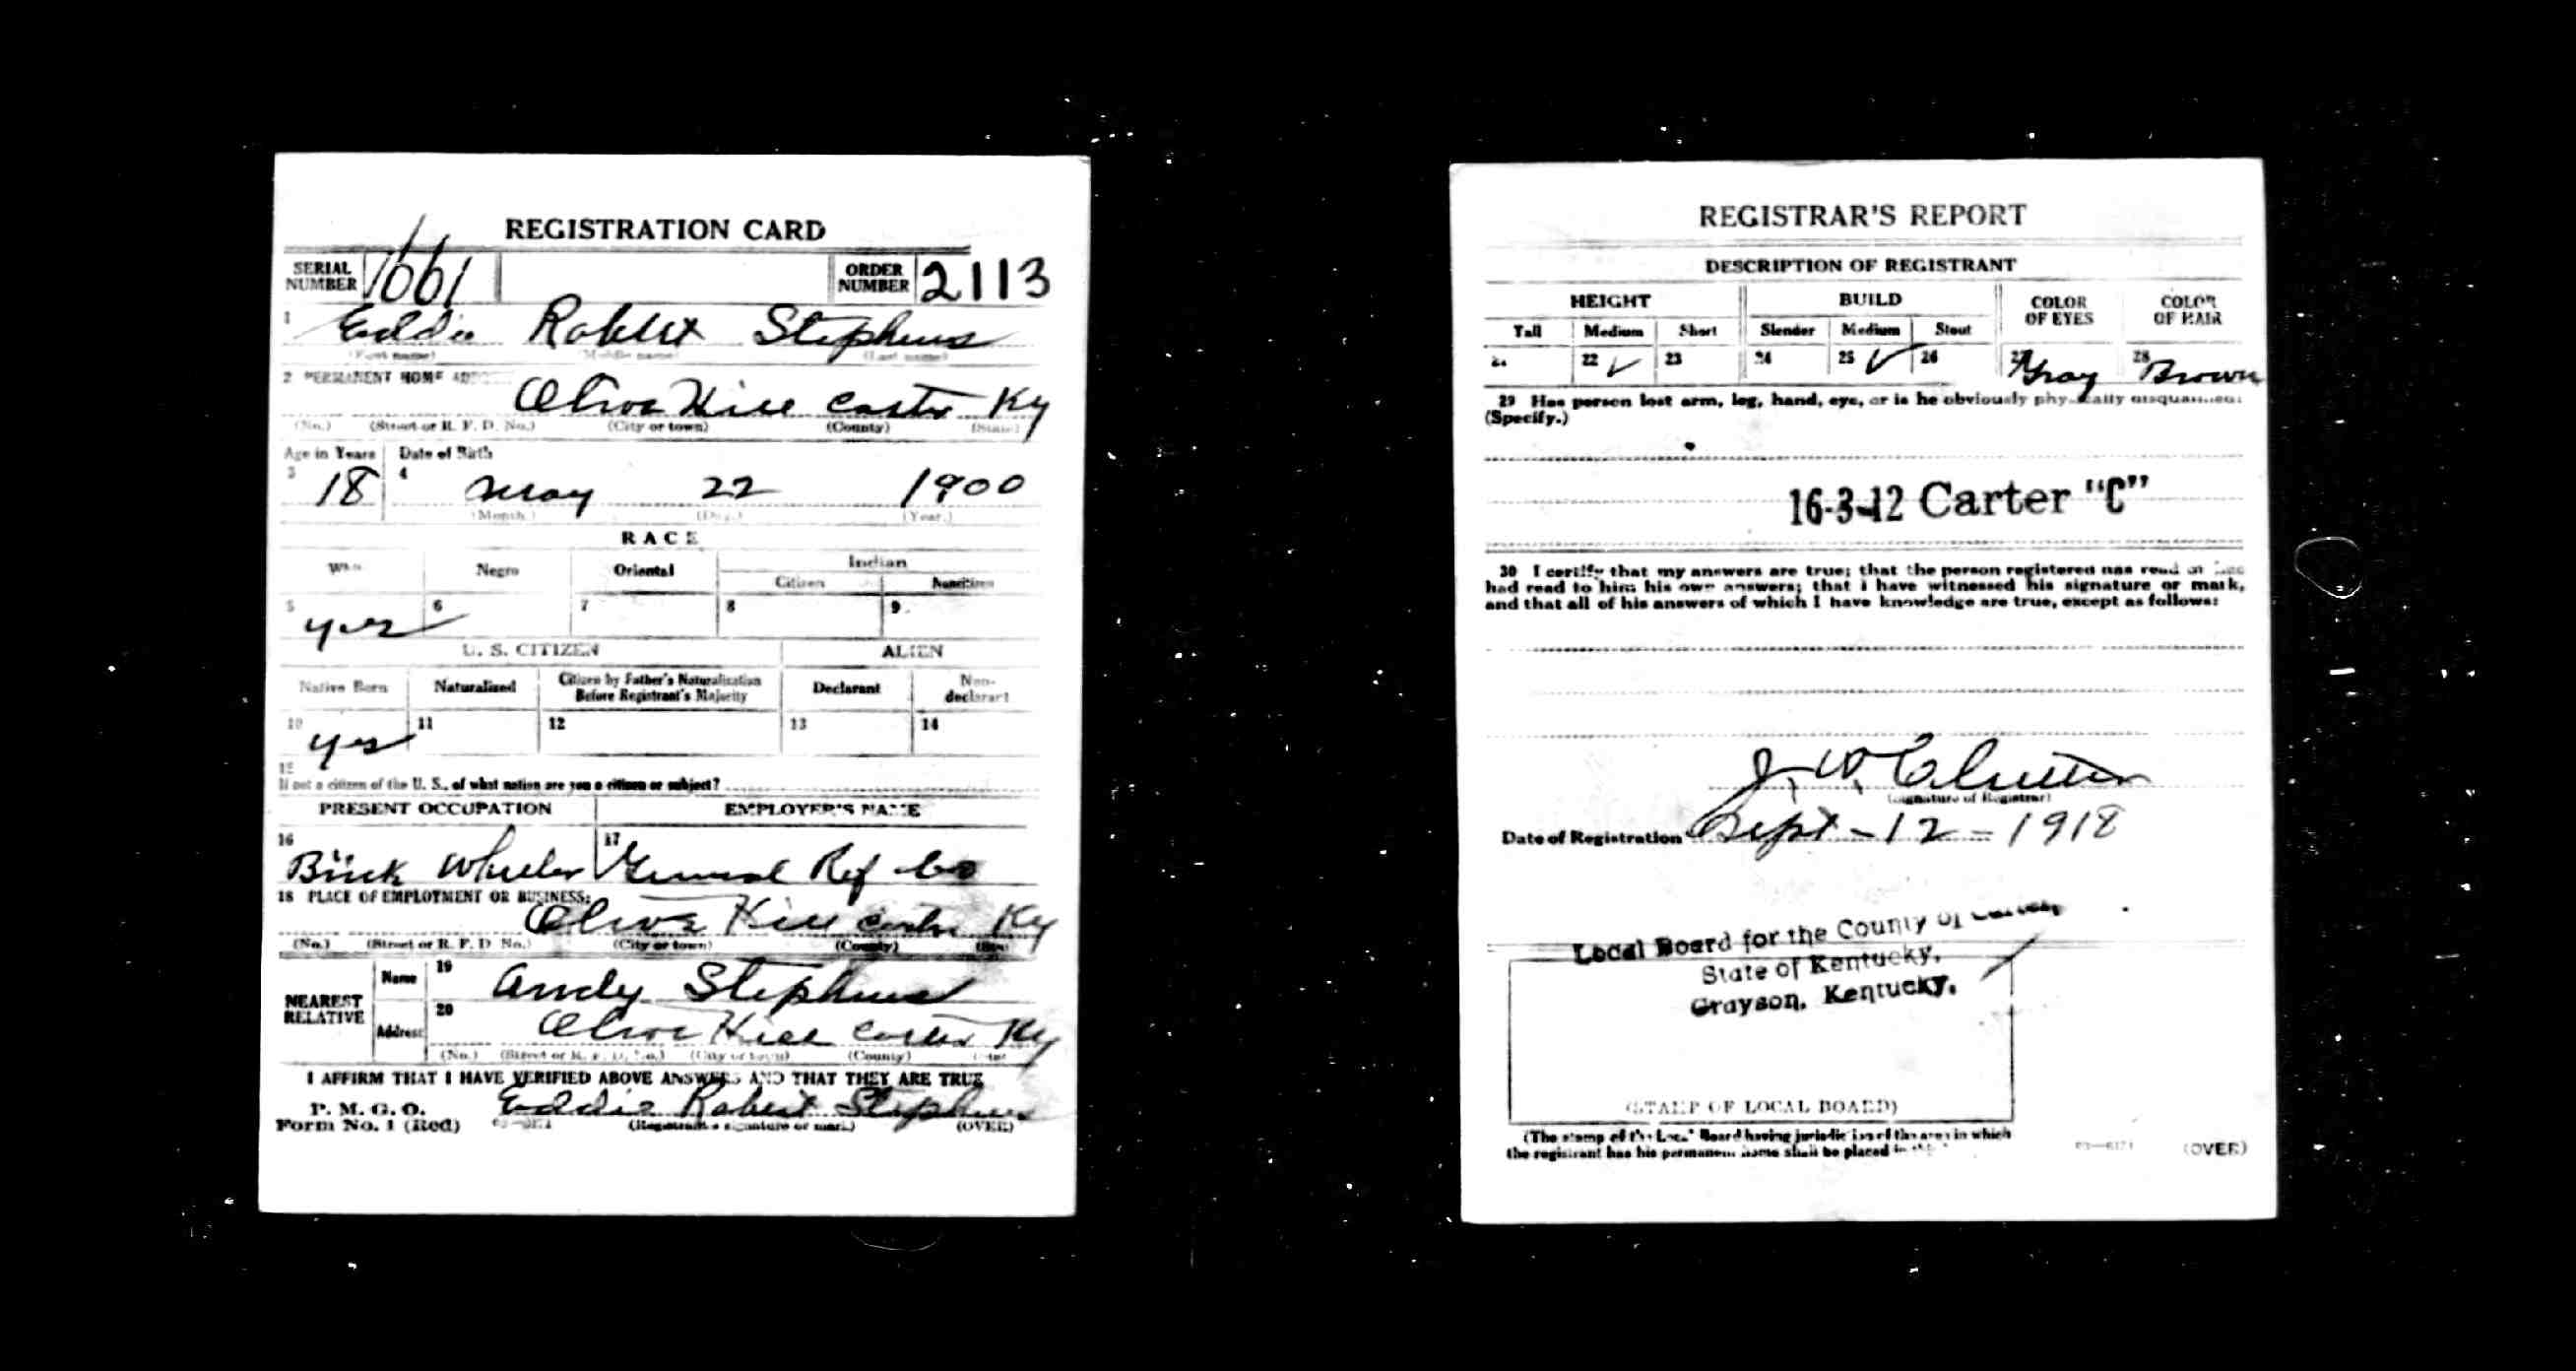 REGISTRATION CARD
SERIAL NUMBER 1661 ORDER NUMBER 2113
1 Eddie Robert Stephens
(First name) (Middle name) (Last name)
2 PERMANENT HOME
Olive Hill Carter Ky
(No.) (Street or R. F. D. No.) (City or town) (County) (State)
Age in Years Date of Birth
3 18 4 May 22 1900
(Month.) (Day.) (Year.)
RACE
Negro Oriental Indian
Citizen Noncitizen
5 yes 6 7 8 9
U. S. CITIZEN ALIEN
Native Born Naturalized Citizen by Father's Naturalization Before Registrant's Majority Declarant Non-declarant
10 yes 11 12 13 14
15
If not a citizen of the U. S., of what nation are you a citizen or subject?
PRESENT OCCUPATION EMPLOYER'S NAME
16 Brick Wheeler 17 General Ref Co
18 PLACE OF EMPLOYMENT OR BUSINESS:
Olive Hill Carter Ky
(No.) (Street or R. F. D. No.) (City or town) (County)
NEAREST RELATIVE Name 19 Andy Stephens
Address 20 Olive Hill Carter Ky
(No.) (Street or R. F. D. No.) (City or town) (County)
I AFFIRM THAT I HAVE VERIFIED ABOVE ANSWERS AND THAT THEY ARE TRUE
P. M. G. O.
Form No. 1 (Red) Eddie Robert Stephens
(Registrant's signature or mark) (OVER)
REGISTRAR'S REPORT
DESCRIPTION OF REGISTRANT
HEIGHT BUILD COLOR OF EYES COLOR OF HAIR
Tall Medium Short Slender Medium Stout
22 ✓ 23 24 25 ✓ 26 27 Gray 28 Brown
29 Has person lost arm, leg, hand, eye, or is he obviously physically disqualified?
(Specify.)
16-3-12 Carter "C"
30 I certify that my answers are true; that the person registered has read or has
had read to him his own answers; that I have witnessed his signature or mark,
and that all of his answers of which I have knowledge are true, except as follows:
J. W.
(Signature of Registrar)
Date of Registration Sept - 12 - 1918
Local Board for the County of Carter,
State of Kentucky,
Grayson, Kentucky.
(STAMP OF LOCAL BOARD)
(The stamp of the Local Board having jurisdiction of the area in which
the registrant has his permanent home shall be placed in
03—6171 (OVER)